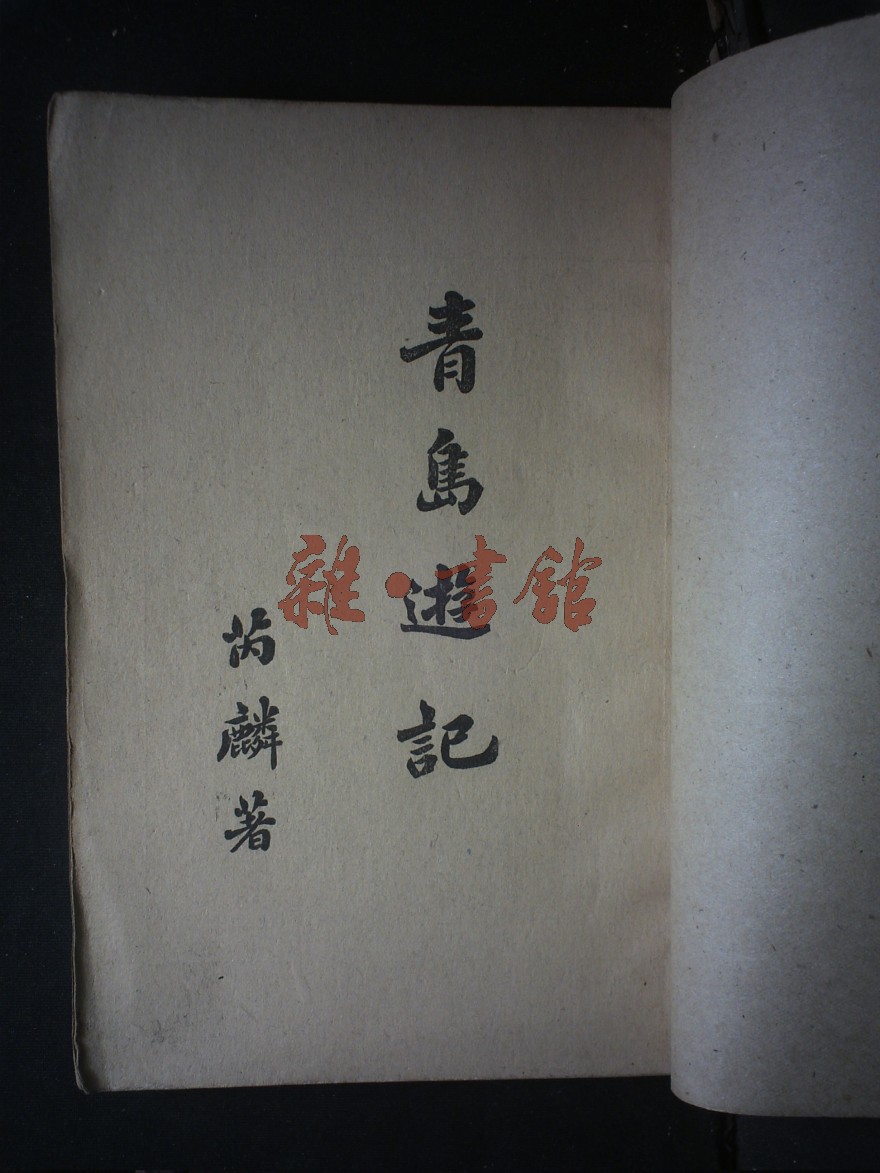 青島遊記
芮麟著
雜·書館